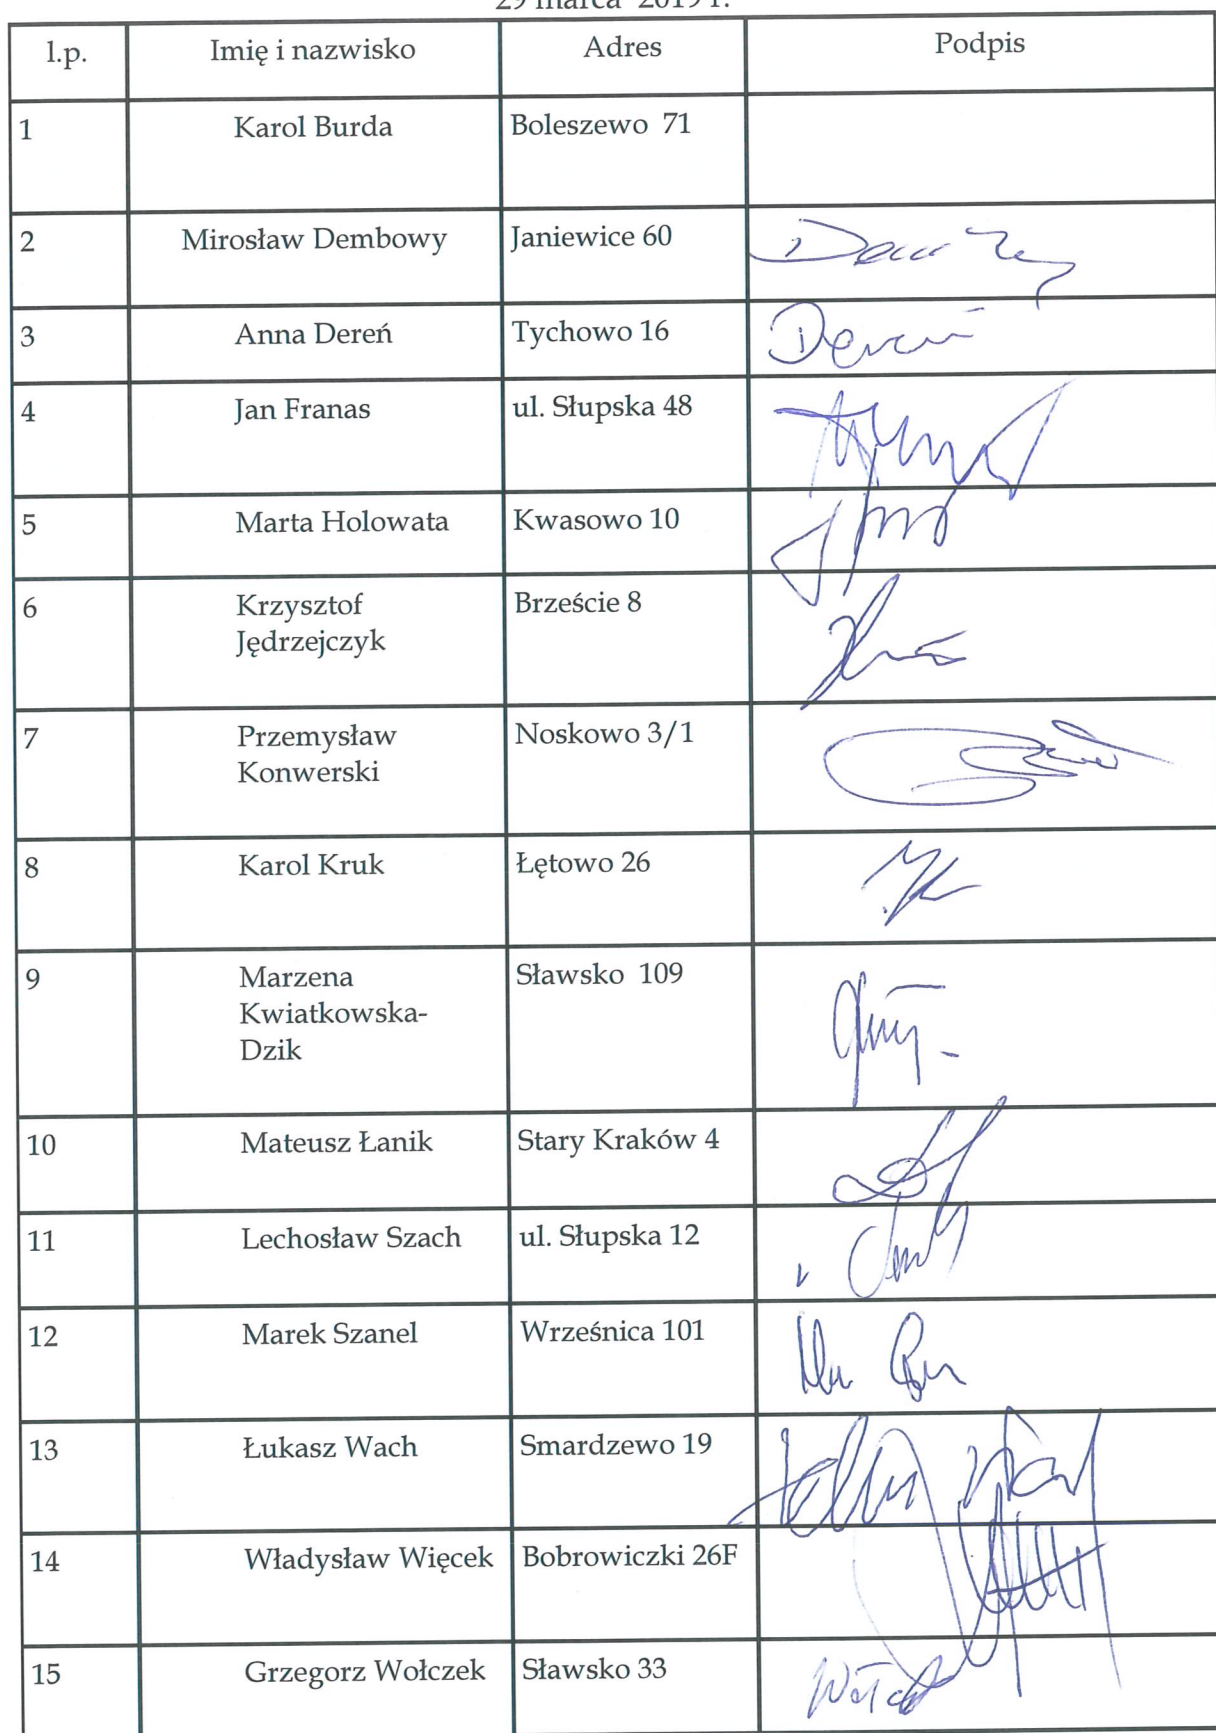 29 marca 2019 r.
l.p. Imię i nazwisko Adres Podpis
1 Karol Burda Boleszewo 71
2 Mirosław Dembowy Janiewice 60
3 Anna Dereń Tychowo 16 Dereń
4 Jan Franas ul. Słupska 48
5 Marta Holowata Kwasowo 10
6 Krzysztof Brzeście 8
Jędrzejczyk
7 Przemysław Noskowo 3/1
Konwerski
8 Karol Kruk Łętowo 26
9 Marzena Sławsko 109
Kwiatkowska-
Dzik
10 Mateusz Łanik Stary Kraków 4
11 Lechosław Szach ul. Słupska 12
12 Marek Szanel Wrześnica 101
13 Łukasz Wach Smardzewo 19
14 Władysław Więcek Bobrowiczki 26F
15 Grzegorz Wołczek Sławsko 33